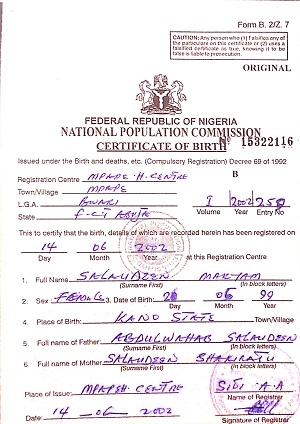 Form B. 2/Z. 7
CAUTION: Any person who (1) Falsifies any of the particulars on this certificate or (2) uses a falsified certificate as true, knowing it to be false is liable to prosecution.
ORIGINAL
FEDERAL REPUBLIC OF NIGERIA
NATIONAL POPULATION COMMISSION
CERTIFICATE OF BIRTH № 15322116
Issued under the Birth and deaths, etc. (Compulsory Registration) Decree 69 of 1992
Registration Centre MPAPE H. CENTRE B
Town/Village MPAPE
L.G.A. BWARI I 2002 250
State F-CT ABUJA Vol. Year Entry No
This to certify that the birth, details of which are recorded herein has been registered on
14 06 2002
Day Month Year at this Registration Centre
1. Full Name SALAUDEEN MARYAM
(Surname First) (In block letters)
2. Sex FEMALE 3. Date of Birth: 06 99
Day Month Year
4. Place of Birth: KANO STATE Town/Village
5. Full name of Father ABDULWAHAB SALAUDEEN
(Surname First) (In block letters)
6. Full name of Mother SALAUDEEN SHARIATU
(Surname First) (In block letters)
Place of Issue: MPAPEH. CENTRE SIDI A.A
Name of Registrar
Date: 14 -06- 2002
Day Month Year Signature of Registrar